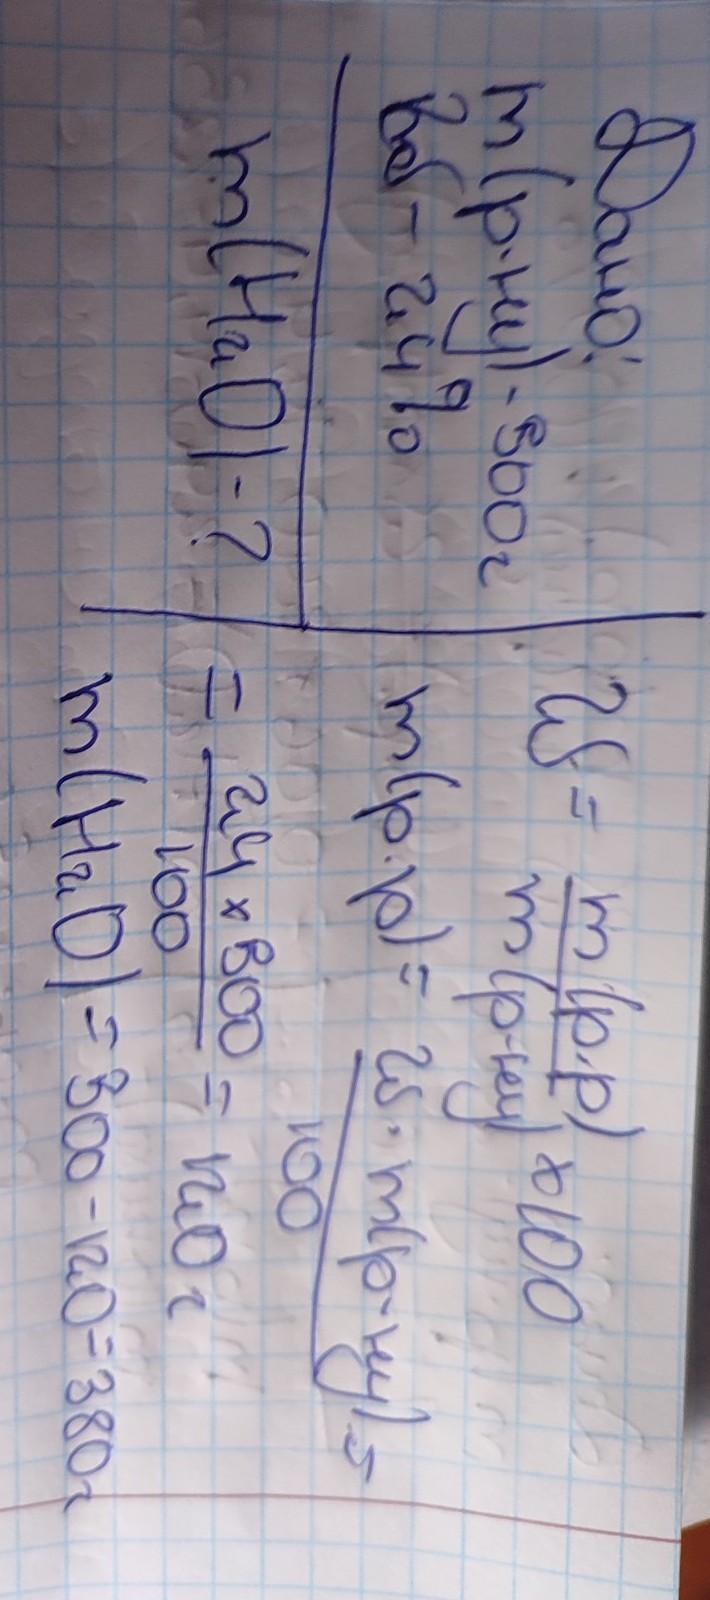 Дано:
m(р-ну)-500г
W-24%
m(H₂O)-?
W = m(р.р)/m(р-ну) x100
m(р.р)= W·m(р-ну)/100 =
= 24x500/100 = 120г
m(H₂O)=500-120=380г